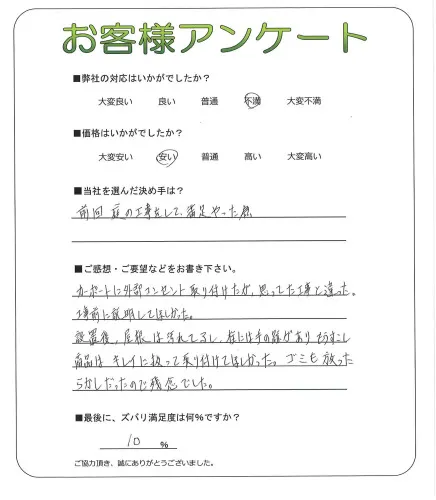 お客様アンケート
■弊社の対応はいかがでしたか？
大変良い 良い 普通 不満 大変不満
■価格はいかがでしたか？
大変安い 安い 普通 高い 大変高い
■当社を選んだ決め手は？
前回 庭の工事をして、満足やった為
■ご感想・ご要望などをお書き下さい。
カーポートに外部コンセント取り付けたが、思ってた工事と違った。
工事前に説明してほしかった。
設置後、屋根は汚れてるし、柱には手の跡があり もう少し
商品は キレイに扱って取り付けてほしかった。ゴミも放った
らかしだったので残念でした。
■最後に、ズバリ満足度は何%ですか？
10 %
ご協力頂き、誠にありがとうございました。